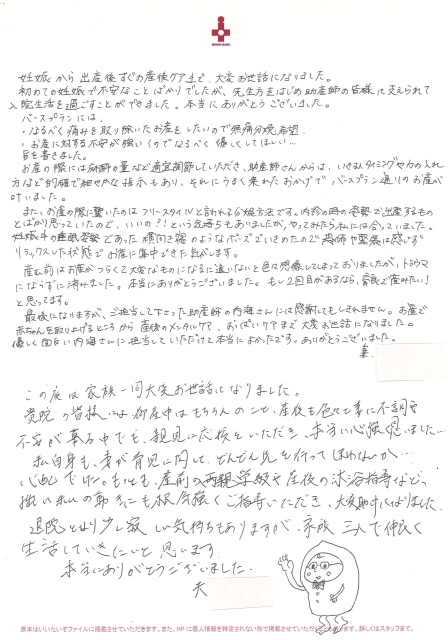 妊娠から出産後すぐの産後ケアまで、大変お世話になりました。
初めての妊娠で不安なことばかりでしたが、先生方をはじめ助産師の皆様に支えられて
入院生活を過ごすことができました。本当にありがとうございました。
バースプランには、
・なるべく痛みを取り除いたお産をしたいので無痛分娩希望
・お産に対する不安が強いのでなるべく優しくしてほしい…
旨を書きました。
お産の際には麻酔の量など適宜調節していただき、助産師さんからは、いきむタイミングや力の入れ
方など的確で細やかな指示もあり、それにうまく乗れたおかげでバースプラン通りのお産が
叶いました。
また、お産の際に驚いたのはフリースタイルと言われる分娩方法です。内診の時の姿勢で出産するもの
とばかり思っていたので、いいの?!という気持ちもありましたが、やってみたら私には合っていました。
妊娠中の睡眠姿勢であった横向き寝のようなポーズでいきめたので恐怖や緊張は感じず
リラックスした状態でお産に集中できた気がします。
産む前はお産がつらくて大変なものになるに違いないと色々想像してしまっておりましたが、トラウマ
にならずに済みました。本当にありがとうございました。もし2回目があるなら、貴院で産みたい!
と思ってます。
最後になりますが、ご担当して下さった助産師の内海さんには感謝してもしきれません。お産で
赤ちゃんを取り上げるところから産後のメンタルケア、おっぱいケアまで大変お世話になりました。
優しく面白い内海さんに担当していただけて本当によかったです。ありがとうございました。
妻
この度は家族一同大変お世話になりました。
貴院の皆様には出産中はもちろんのこと、産後も色々と妻に不調や
不安が募る中でも、親身に応援をいただき、本当に心強く思いました…
私自身も、妻が育児に関して、どんどん先を行ってしまわないか…
心配でした。もっとも、産前の両親学級や産後の沐浴指導など、
拙い私の動きにも根気強くご指導いただき、大変助けになりました。
退院となり少し寂しい気持ちもありますが、家族三人で仲良く
生活していきたいと思います
本当にありがとうございました。
夫
原本はいいたいぞファイルに掲載させていただきます。また、HPに個人情報を特定されない形で掲載させていただくこともあります。詳しくはスタッフまで。